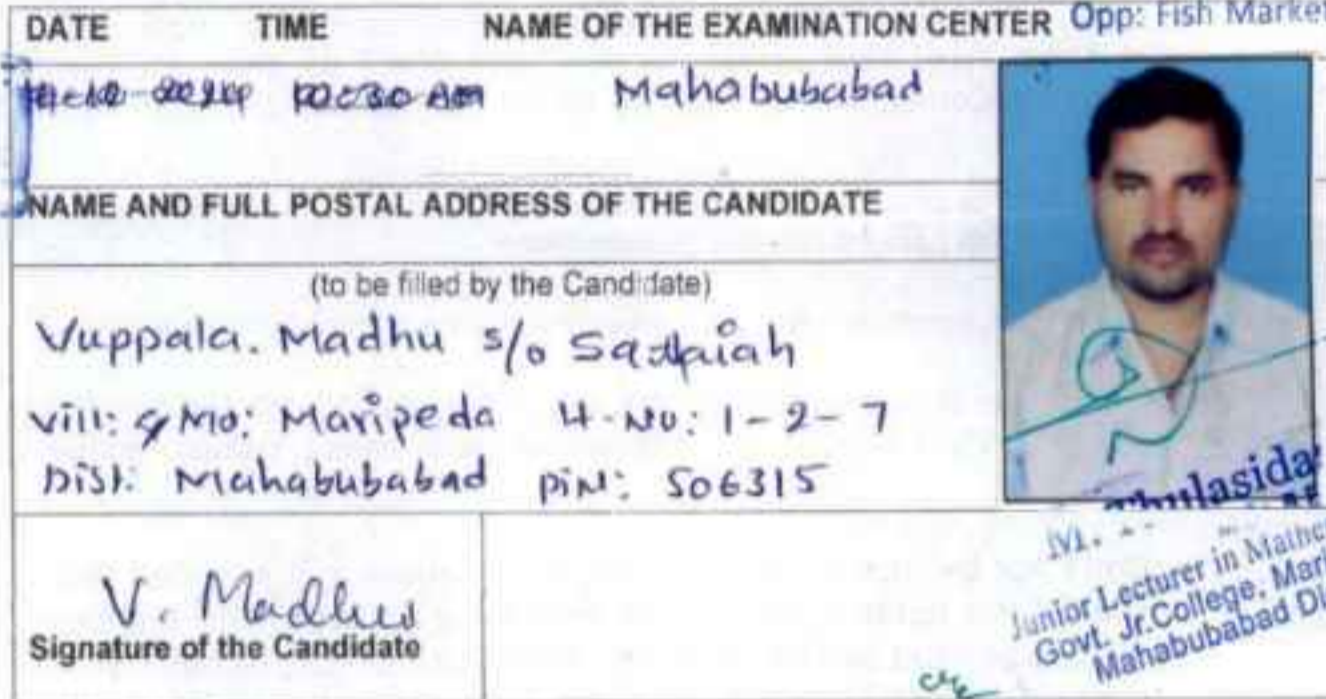 DATE TIME NAME OF THE EXAMINATION CENTER Opp: Fish Market
Mahabubabad
NAME AND FULL POSTAL ADDRESS OF THE CANDIDATE
(to be filled by the Candidate)
Vuppala. Madhu s/o Sattaiah
Vill: & Mo: Maripeda H-No: 1-2-7
Dist: Mahabubabad Pin: 506315
Thulasida
M.
V. Madhu
Signature of the Candidate
Junior Lecturer in Mathe
Govt. Jr.College, Mari
Mahabubabad Di